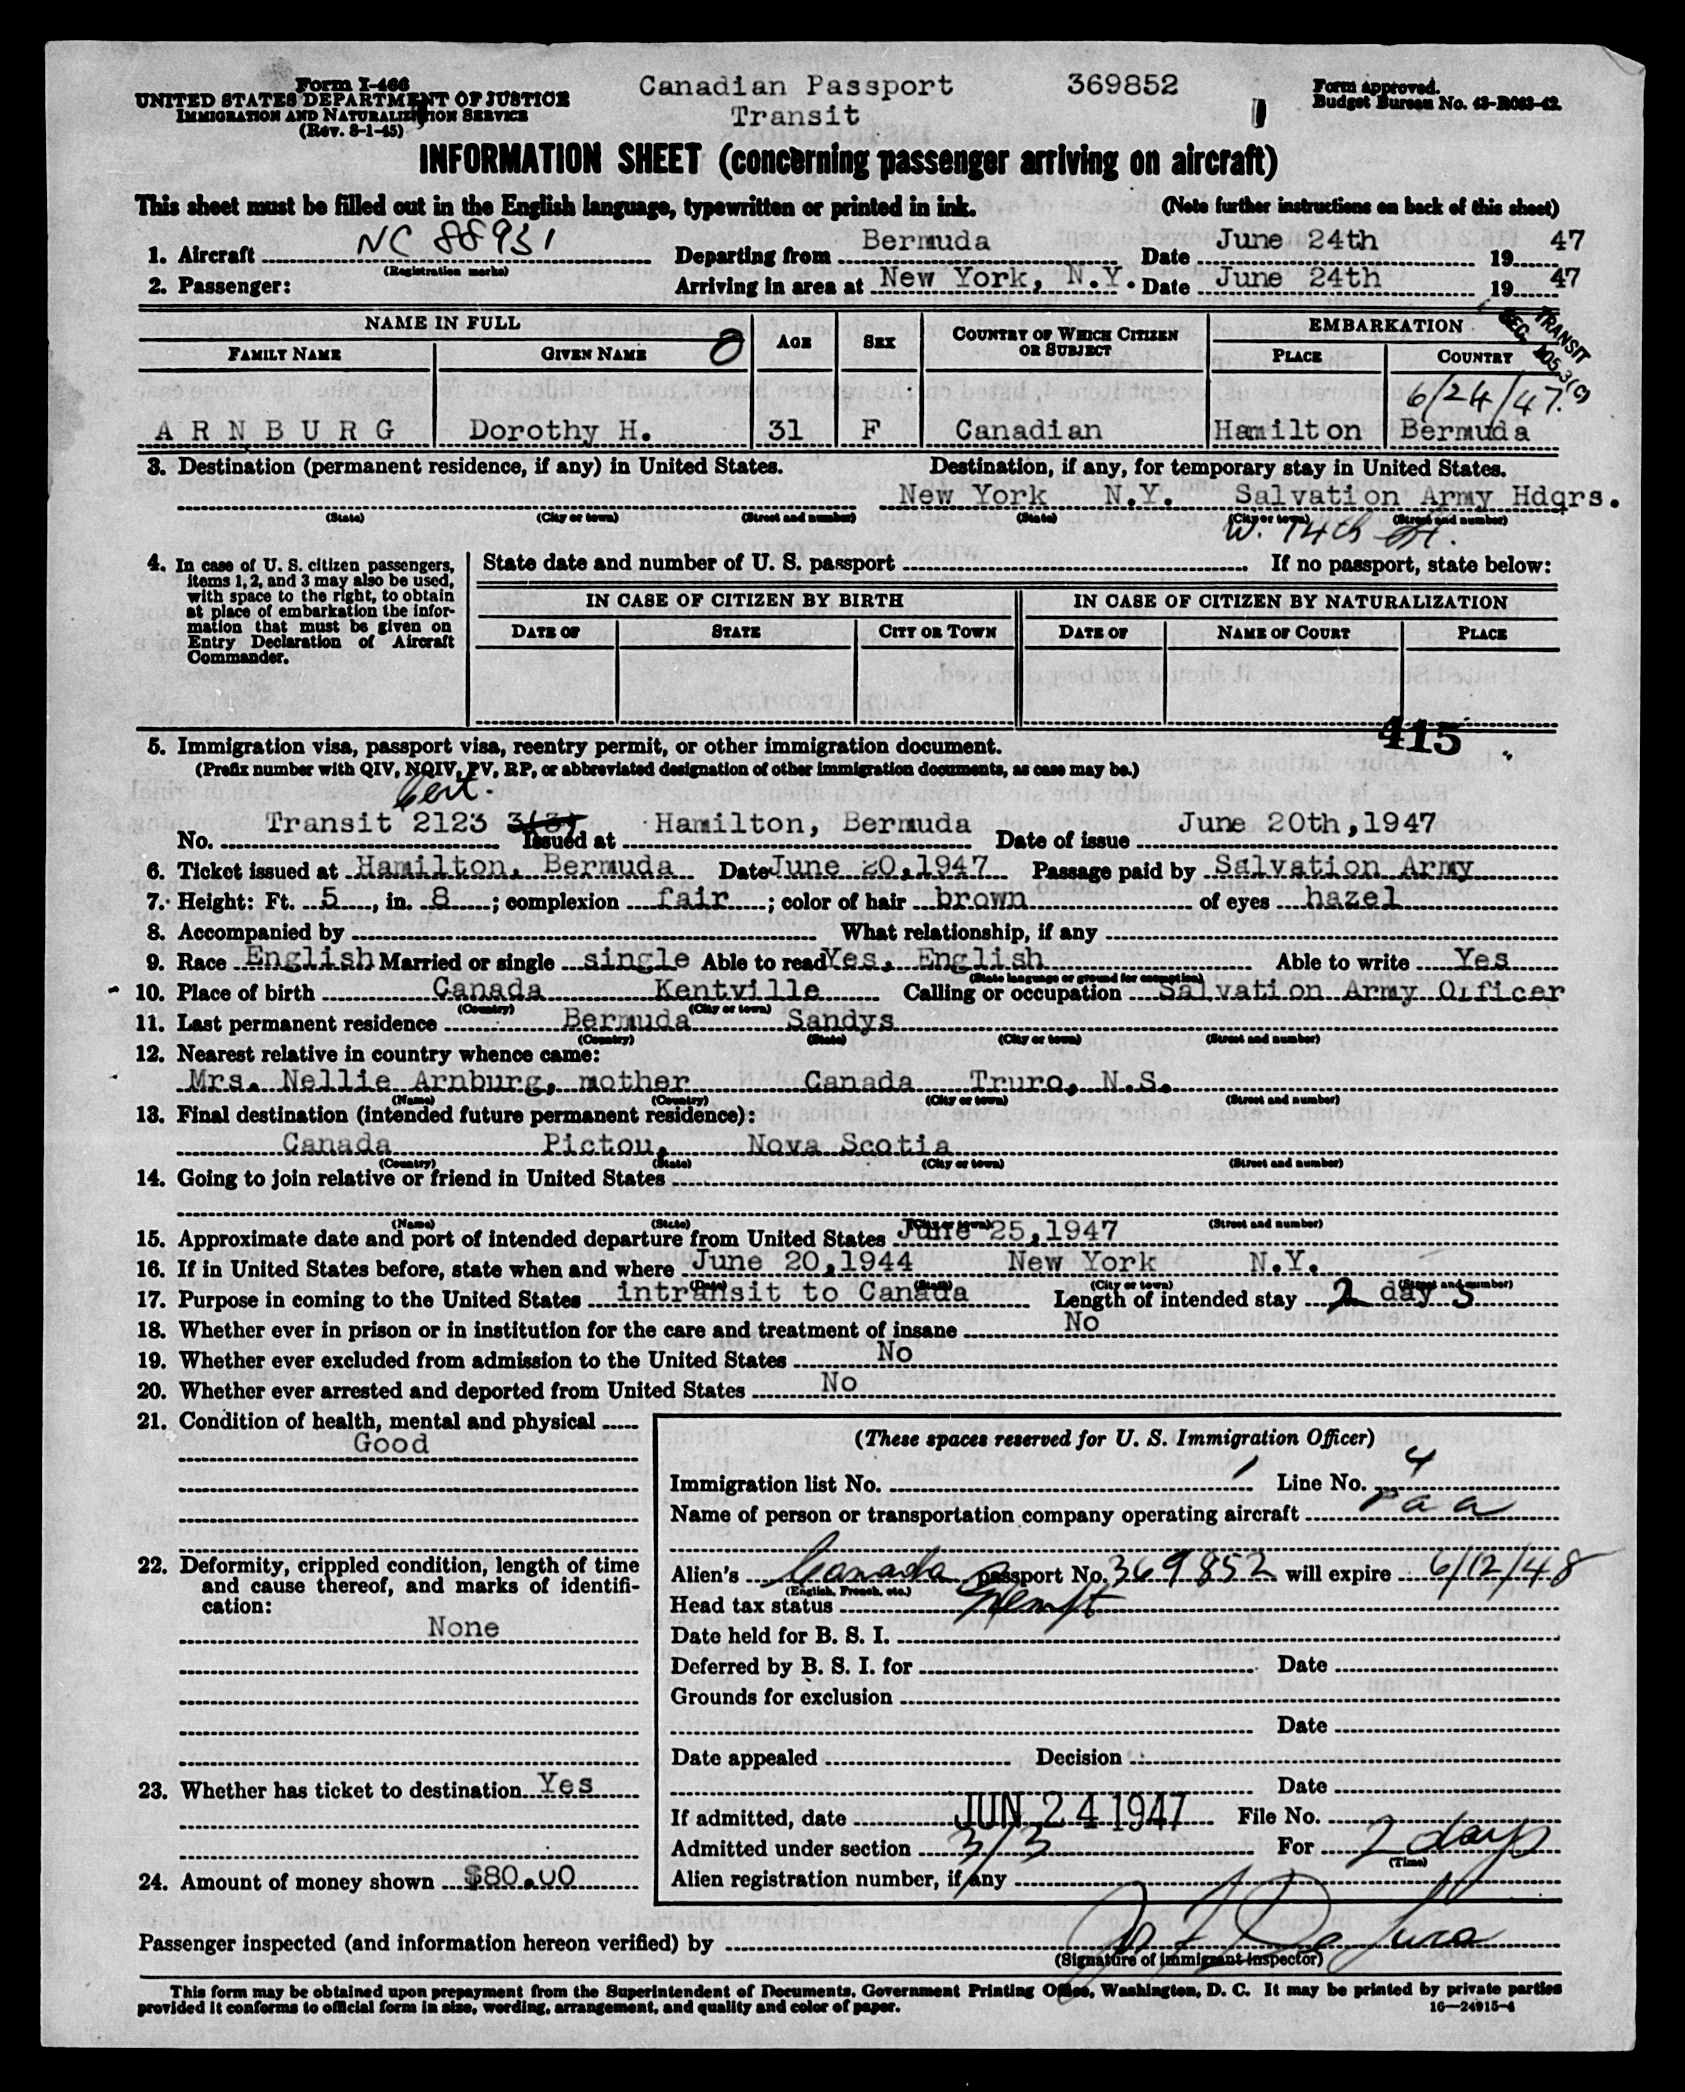 Form I-466
UNITED STATES DEPARTMENT OF JUSTICE
IMMIGRATION AND NATURALIZATION SERVICE
(Rev. 8-1-45)
Canadian Passport 369852
Transit
Form approved.
Budget Bureau No. 43-R063-42.
INFORMATION SHEET (concerning passenger arriving on aircraft)
This sheet must be filled out in the English language, typewritten or printed in ink. (Note further instructions on back of this sheet)
1. Aircraft NC 88931 Departing from Bermuda Date June 24th 1947
(Registration marks)
2. Passenger: Arriving in area at New York, N.Y. Date June 24th 1947
NAME IN FULL AGE SEX COUNTRY OF WHICH CITIZEN OR SUBJECT EMBARKATION
FAMILY NAME GIVEN NAME PLACE COUNTRY
TRANSIT
SEC. 105.3(C)
6/24/47
ARNBURG Dorothy H. 31 F Canadian Hamilton Bermuda
3. Destination (permanent residence, if any) in United States. Destination, if any, for temporary stay in United States.
New York N.Y. Salvation Army Hdqrs.
(State) (City or town) (Street and number) (State) (City or town) (Street and number)
W. 14th St.
4. In case of U. S. citizen passengers, items 1, 2, and 3 may also be used, with space to the right, to obtain at place of embarkation the information that must be given on Entry Declaration of Aircraft Commander.
State date and number of U. S. passport If no passport, state below:
IN CASE OF CITIZEN BY BIRTH IN CASE OF CITIZEN BY NATURALIZATION
DATE OF STATE CITY OR TOWN DATE OF NAME OF COURT PLACE
415
5. Immigration visa, passport visa, reentry permit, or other immigration document.
(Prefix number with QIV, NQIV, PV, RP, or abbreviated designation of other immigration documents, as case may be.)
Cert.
No. Transit 2123 3(3) Issued at Hamilton, Bermuda Date of issue June 20th, 1947
6. Ticket issued at Hamilton, Bermuda Date June 20, 1947 Passage paid by Salvation Army
7. Height: Ft. 5, in. 8; complexion fair; color of hair brown of eyes hazel
8. Accompanied by What relationship, if any
9. Race English Married or single single Able to read Yes, English Able to write Yes
(State language or ground for exemption)
10. Place of birth Canada Kentville Calling or occupation Salvation Army Officer
(Country) (City or town)
11. Last permanent residence Bermuda Sandys
(Country) (State) (City or town) (Street and number)
12. Nearest relative in country whence came:
Mrs. Nellie Arnburg, mother Canada Truro, N.S.
(Name) (Country) (City or town) (Street and number)
13. Final destination (intended future permanent residence):
Canada Pictou, Nova Scotia
(Country) (State) (City or town) (Street and number)
14. Going to join relative or friend in United States
(Name) (State) (City or town) (Street and number)
15. Approximate date and port of intended departure from United States June 25, 1947
16. If in United States before, state when and where June 20, 1944 New York N.Y.
(Date) (State) (City or town) (Street and number)
17. Purpose in coming to the United States intransit to Canada Length of intended stay 2 days
18. Whether ever in prison or in institution for the care and treatment of insane No
19. Whether ever excluded from admission to the United States No
20. Whether ever arrested and deported from United States No
21. Condition of health, mental and physical
Good
22. Deformity, crippled condition, length of time and cause thereof, and marks of identification:
None
23. Whether has ticket to destination Yes
24. Amount of money shown $80.00
(These spaces reserved for U. S. Immigration Officer)
Immigration list No. 1 Line No. 4
Name of person or transportation company operating aircraft Paa
Alien's Canada passport No. 369852 will expire 6/12/48
(English, French, etc.)
Head tax status Exempt
Date held for B. S. I.
Deferred by B. S. I. for Date
Grounds for exclusion
Date
Date appealed Decision
Date
If admitted, date JUN 24 1947 File No.
Admitted under section 3/3 For 2 days
(Time)
Alien registration number, if any
Passenger inspected (and information hereon verified) by
(Signature of immigrant inspector)
This form may be obtained upon prepayment from the Superintendent of Documents, Government Printing Office, Washington, D. C. It may be printed by private parties
provided it conforms to official form in size, wording, arrangement, and quality and color of paper. 16—24915-4